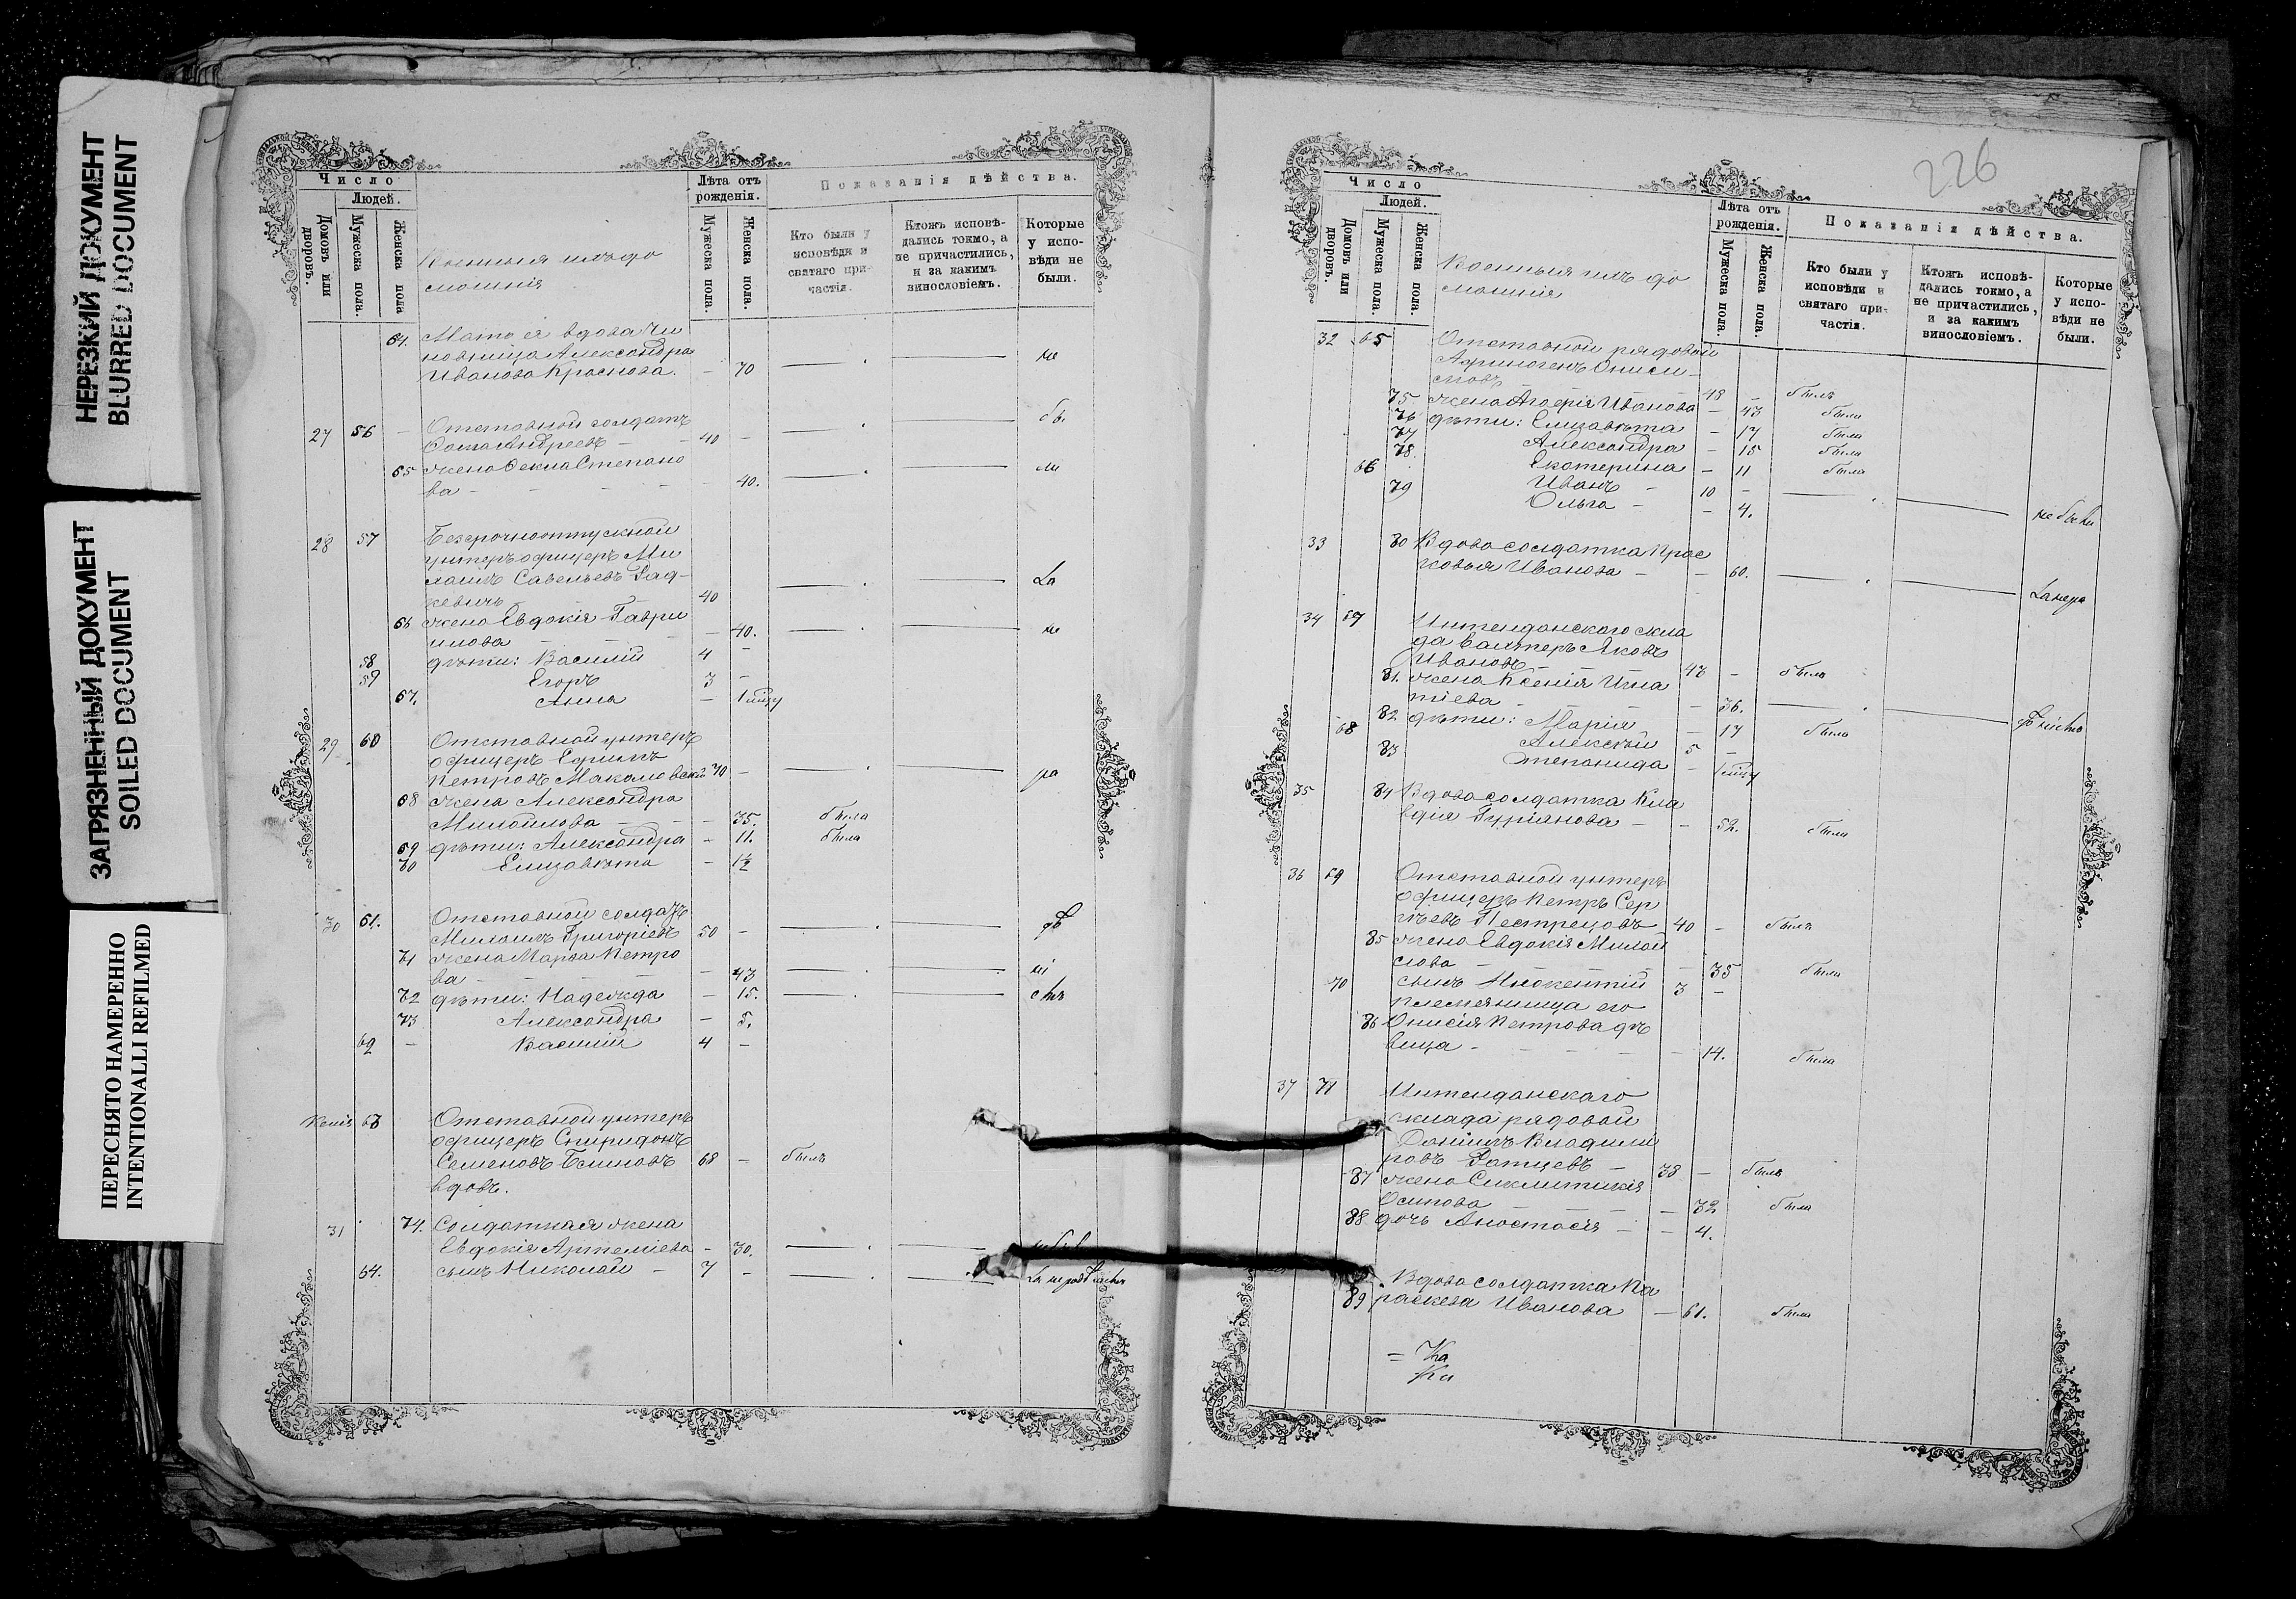 НЕРЕЗКИЙ ДОКУМЕНТ
BLURRED DOCUMENT
ЗАГРЯЗНЕННЫЙ ДОКУМЕНТ
SOILED DOCUMENT
ПЕРЕСНЯТО НАМЕРЕННО
INTENTIONALLI REFILMED
Число
Людей.
Домовъ или дворовъ.
Мужеска пола.
Женска пола
Военныя ихъ до
машнія
Лѣта отъ рожденія.
Мужеска пола.
Женска пола.
Показанія дѣйства.
Кто были у исповѣди и святаго причастія.
Ктожъ исповѣдались токмо, а не причастились, и за какимъ винословіемъ.
Которые у исповѣди не были.
64. Мать ея вдова Чи
новница Александра
Иванова Краснова. - 70 не
27 56 - Отставной солдатъ
Фома Андреевъ - 40 - бы
65 жена Фекла Степано
ва - 40. ли
28 57 Безсрочноотпускной
унтеръ офицеръ Ми
хаилъ Савельевъ Рад-
кевичъ 40 За
66 жена Евдокія Гаври
илова - 40. не
58 дѣти: Василій 4 -
59 Егоръ 3 -
67. Анна - 1
29 60 Отставной унтеръ
офицеръ Ефимъ
Петровъ Макаловскій 70 - ра
68 жена Александра
Михайлова - 35. была
69 дѣти: Александра - 11. была
70 Елизавета - 1½
30 61. Отставной солдатъ
Михаилъ Григоріевъ 50 - дѣ
71 жена Марфа Петро
ва - 43 ні
72 дѣти: Надежда - 15. емъ
73 Александра - 5.
62 - Василій 4 -
63 Отставной унтеръ
офицеръ Спиридонъ
Семеновъ 68 - былъ
вдовъ.
31 74. Солдатская жена
Евдокія Артеміева - 30.
64. сынъ Николай - 7 -
226
Число
Людей.
Домовъ или дворовъ.
Мужеска пола.
Женска пола.
Военныя ихъ до
машнія
Лѣта отъ рожденія.
Мужеска пола.
Женска пола.
Показанія дѣйства.
Кто были у исповѣди и святаго причастія.
Ктожъ исповѣдались токмо, а не причастились, и за какимъ винословіемъ.
Которые у исповѣди не были.
32 65 Отставной рядовой
Афиногенъ Ониси-
мовъ 48 - былъ
75 жена Иванова - 43 была
76 дѣти: Елизавета - 17 была
77 Александра - 15 была
78. Екатерина - 11 была
66 Иванъ - 10 -
79 Ольга - - 4. не были
33 80 Вдова солдатка Прас
ковья Иванова - - 60. За нера
34 67 Интенданскаго скла
да вахтеръ Яковъ
Ивановъ 43 - былъ
81. жена Ксенія Игна
тіева - 36. дѣніемъ
82 дѣти: Марія - 17 была
68 Алексѣй 5 -
83 Степанида - 1
35 84 Вдова солдатка Кла
вдія Гуріянова - - 52. была
36 69 Отставной унтеръ
офицеръ Петръ Сер
гѣевъ Пестрецовъ 40 - былъ
85 жена Евдокія Михай
лова - 35 была
70 сынъ Инокентій 3 -
племянница его
86 Онисія Петрова дѣ
вица - 14. была
37 71 Интенданскаго
склада рядовой
Даніилъ Владими
ровъ - 38 - былъ
87 жена Сиклитикія
Осипова - 32 была
88 дочь Анастасія - - 4.
Вдова солдатка Па
89 раскева Иванова - 61. была